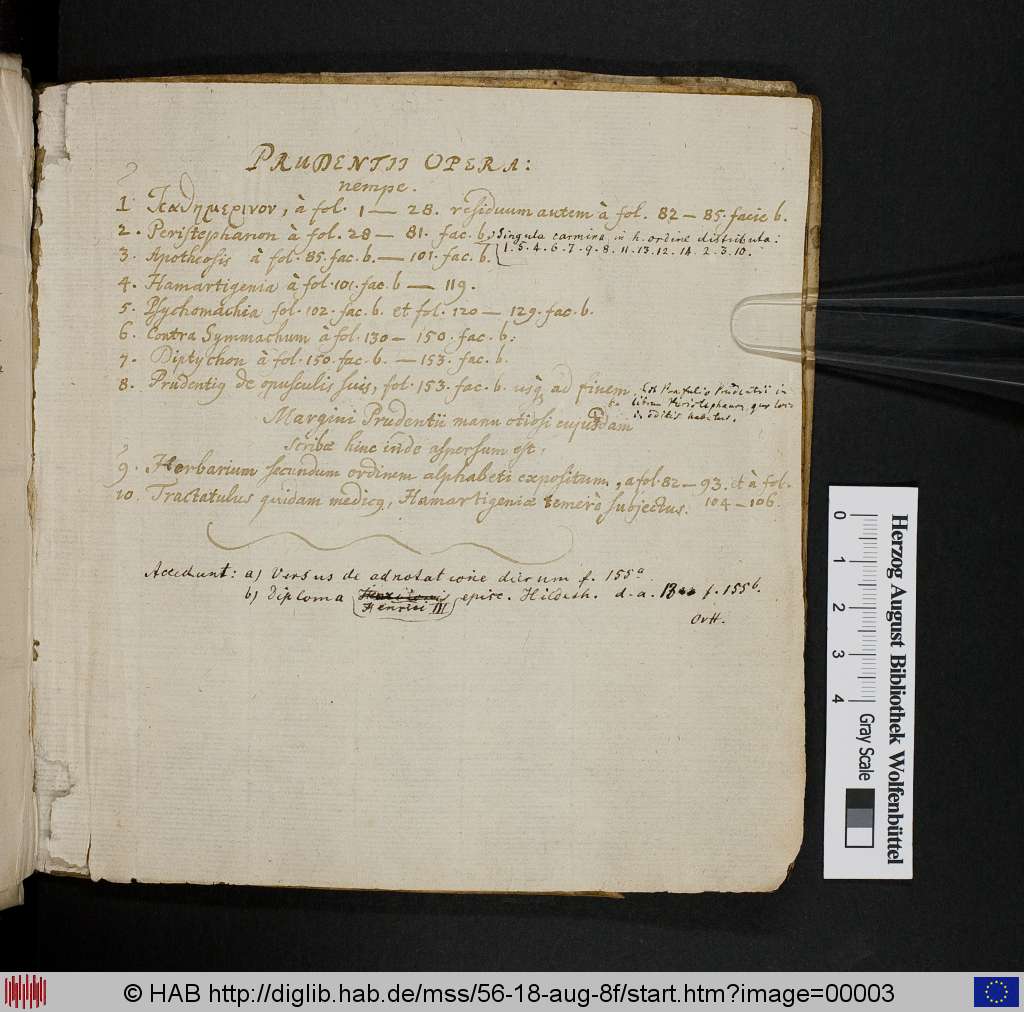 PRUDENTII OPERA:
nempe.
1. Καθημερινον, à fol. 1 — 28. residuum autem à fol. 82 — 85. facie b.
2. Peristephanon à fol. 28 — 81. fac. b. Singula carmina in h. ordine distributa:
1. 5. 4. 6. 7. 9. 8. 11. 13. 12. 14. 2. 3. 10.
3. Apotheosis à fol. 85. fac. b. — 101. fac. b.
4. Hamartigenia à fol. 101. fac. b — 119.
5. Psychomachia fol. 102. fac. b. et fol. 120 — 129. fac. b.
6. Contra Symmachum à fol. 130 — 150. fac. b.
7. Diptychon à fol. 150. fac. b. — 153. fac. b.
8. Prudentig de opusculis suis, fol. 153. fac. b. usq ad finem. Est Praefatio Prudentii in
librum Peristephanon, quo loco
in editis habetur.
Margini Prudentii manu otiosi cujusdam
scribæ hinc inde aspersum est,
9. Herbarium secundum ordinem alphabeti expositum, a fol. 82 — 93. et à fol.
104 — 106.
10. Tractatulus quidam medicq, Hamartigeniæ temerè subjectus.
Accedunt: a) Versus de adnotatione dierum f. 155a
b) Diploma Henrici III epis. Hildesh. d. a. f. 155b.
OvH.
Herzog August Bibliothek Wolfenbüttel
0 1 2 3 4
Gray Scale
© HAB http://diglib.hab.de/mss/56-18-aug-8f/start.htm?image=00003